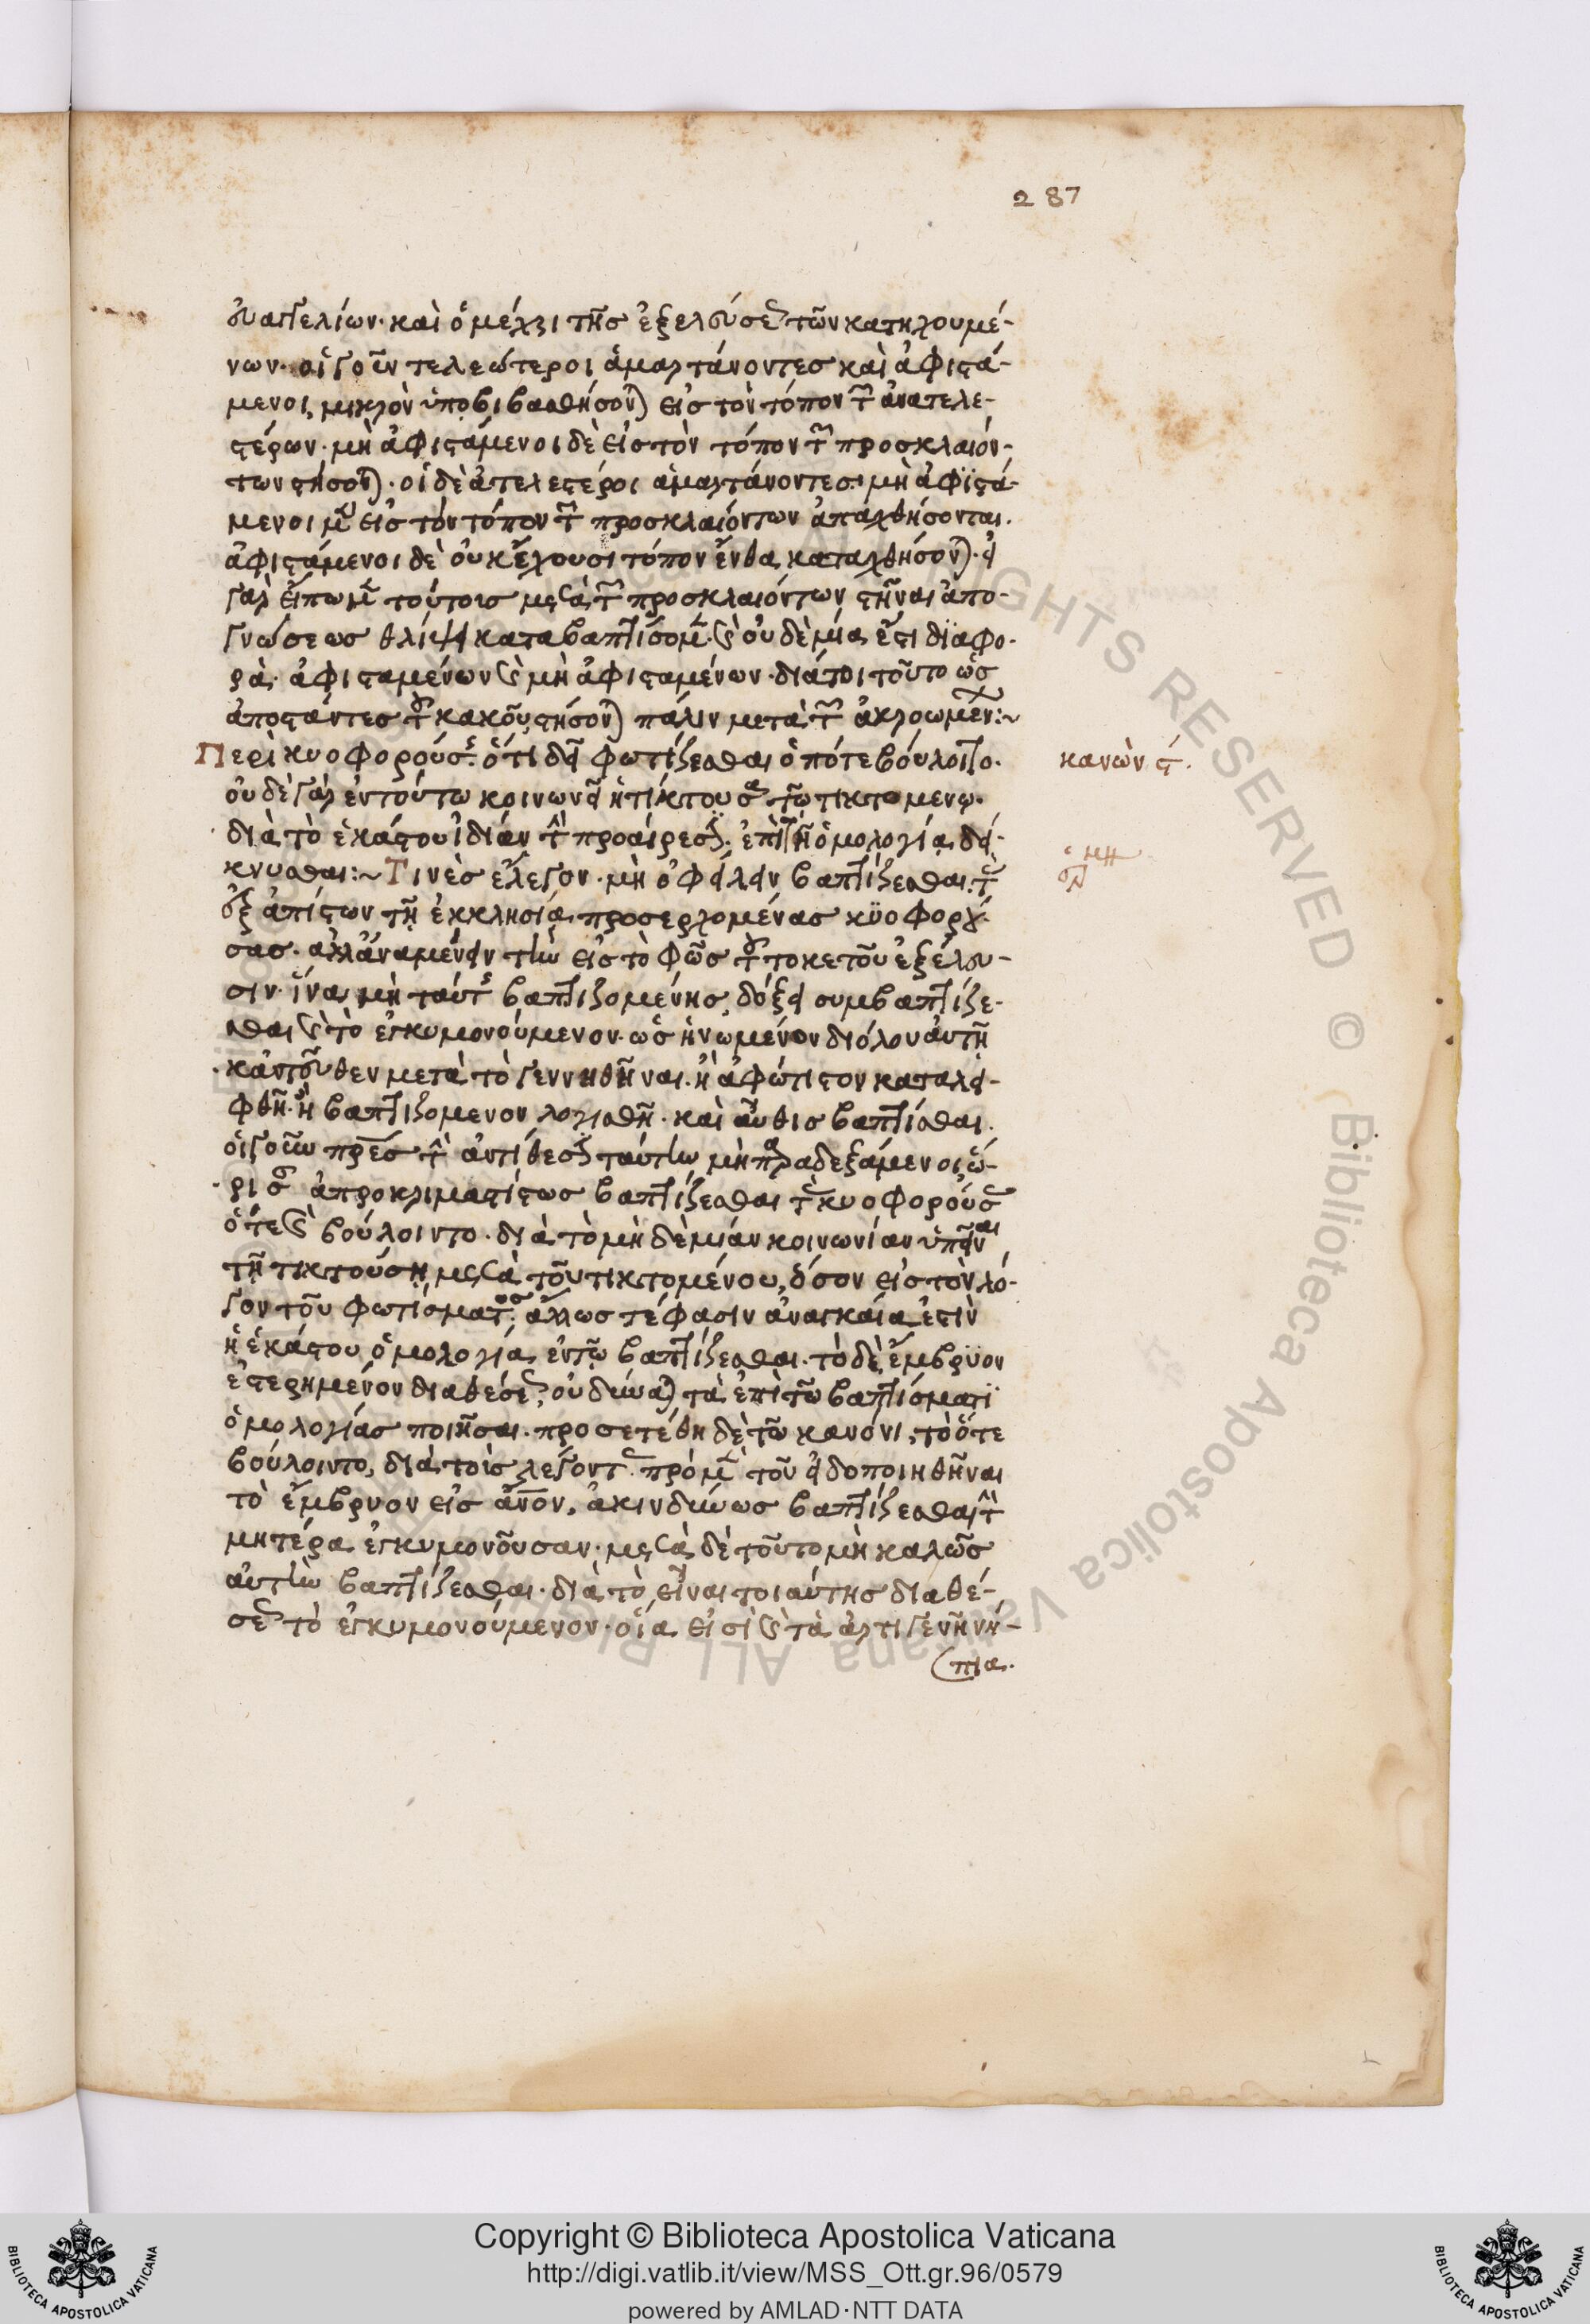 287
εὐαγγελίων· καὶ ὁ μέχρι τῆς ἐξελεύσεως τῶν κατηχουμέ-
νων· οἱ γοῦν τελεώτεροι ἁμαρτάνοντες καὶ ἀφιστά-
μενοι, μικρὸν ὑποβιβασθήσονται εἰς τὸν τόπον τῶν ἀτελε-
στέρων· μὴ ἀφιστάμενοι δὲ εἰς τὸν τόπον τῶν προσκλαιόν-
των στήσονται· οἱ δὲ ἀτελεστέροι ἁμαρτάνοντες· μὴ ἀφϊστά-
μενοι μὲν εἰς τὸν τόπον τῶν προσκλαιόντων ἀπαχθήσονται.
ἀφιστάμενοι δὲ οὐκ ἔχουσι τόπον ἔνθα καταχθήσονται· εἰ
γὰρ εἴπωμεν τούτοις μετὰ τῶν προσκλαιόντων στῆναι ἀπο-
γνώσεως θλίψει καταβαπτίσομεν· καὶ οὐδὲ μία ἔσται διαφο-
ρὰ· ἀφισταμένων καὶ μὴ ἀφισταμένων· διάτοι τοῦτο ὡς
ἀποστάντες τοῦ κακοῦ, στήσονται πάλιν μετὰ τῶν ἀκροωμένων:~
Περὶ κυοφορούσης· ὅτι δεῖ φωτίζεσθαι ὁπότε βούλοιτο·
κανὼν ϛ.
οὐδὲ γὰρ ἐν τούτω κοινωνεῖ ἡ τίκτουσα τῶ τικτομενω·
διὰ τὸ ἑκάστου ἰδίαν τὴν προαίρεσιν ἐπὶ τῆ ὁμολογία δεί-
κνυσθαι:~ Τινὲς ἔλεγον· μὴ ὀφείλειν βαπτίζεσθαι τὰς
ἐξ ἀπίστων τῆ ἐκκλησία προσερχομένας κϋοφορού-
σας· ἀλλ᾽ ἀναμένειν τὴν εἰς τὸ φῶς τοῦ τοκετοῦ ἐξέλευ-
σιν· ἵνα μὴ ταύτης βαπτιζομένης, δόξει συμβαπτίζε-
σθαι καὶ τὸ ἐγκυμονούμενον· ὡς ἡνωμένον διόλου αὐτῆ
κἀντεῦθεν μετὰ τὸ γεννηθῆναι· ἢ ἀφώτιστον καταλει-
φθῆ· ἢ βαπτιζομενον λογισθῆ· καὶ αὖθις βαπτίσθαι.
οἱ γοῦν πρες τὴν ἀντίθεσιν ταύτην μὴ παραδεξάμενοι, ὥ-
ρισαν ἀπροκριματίστως βαπτίζεσθαι τὰς κυοφορούσας
ὅτε καὶ βούλοιντο· διὰ τὸ μὴ δὲ μίαν κοινωνίαν ὑπεῖναι
τῆ τικτούση μετὰ τοῦ τικτομένου, ὅσον εἰς τὸν λό-
γον τοῦ φωτίσματος· ἄλλως τέ φασιν ἀναγκαία ἐστὶν
ἡ ἑκάστου ὁμολογία ἐν τῶ βαπτίζεσθαι· τὸ δὲ ἔμβρϋον
ἐστερημένον διαθέσεως, οὐ δύναται τὰ ἐπὶ τῶ βαπτίσματϊ
ὁμολογίας ποιῆσαι· προσετέθη δὲ τῶ κανόνι, τὸ ὅτε
βούλοιντο, διὰ τοὺς λέγοντας πρὸ μὲν τοῦ εἰδοποιηθῆναι
τὸ ἔμβρυον εἰς ἄνον, ἀκινδύνως βαπτίζεσθαι τὴν
μητέρα ἐγκυμονοῦσαν· μετὰ δὲ τοῦτο μὴ καλῶς
αὐτὴν βαπτίζεσθαι· διὰ τὸ εἶναι τοιαύτης διαθέ-
σεως τὸ ἐγκυμονούμενον· οἷα εἰσὶ καὶ τὰ ἀρτιγενῆ νή-
πια.